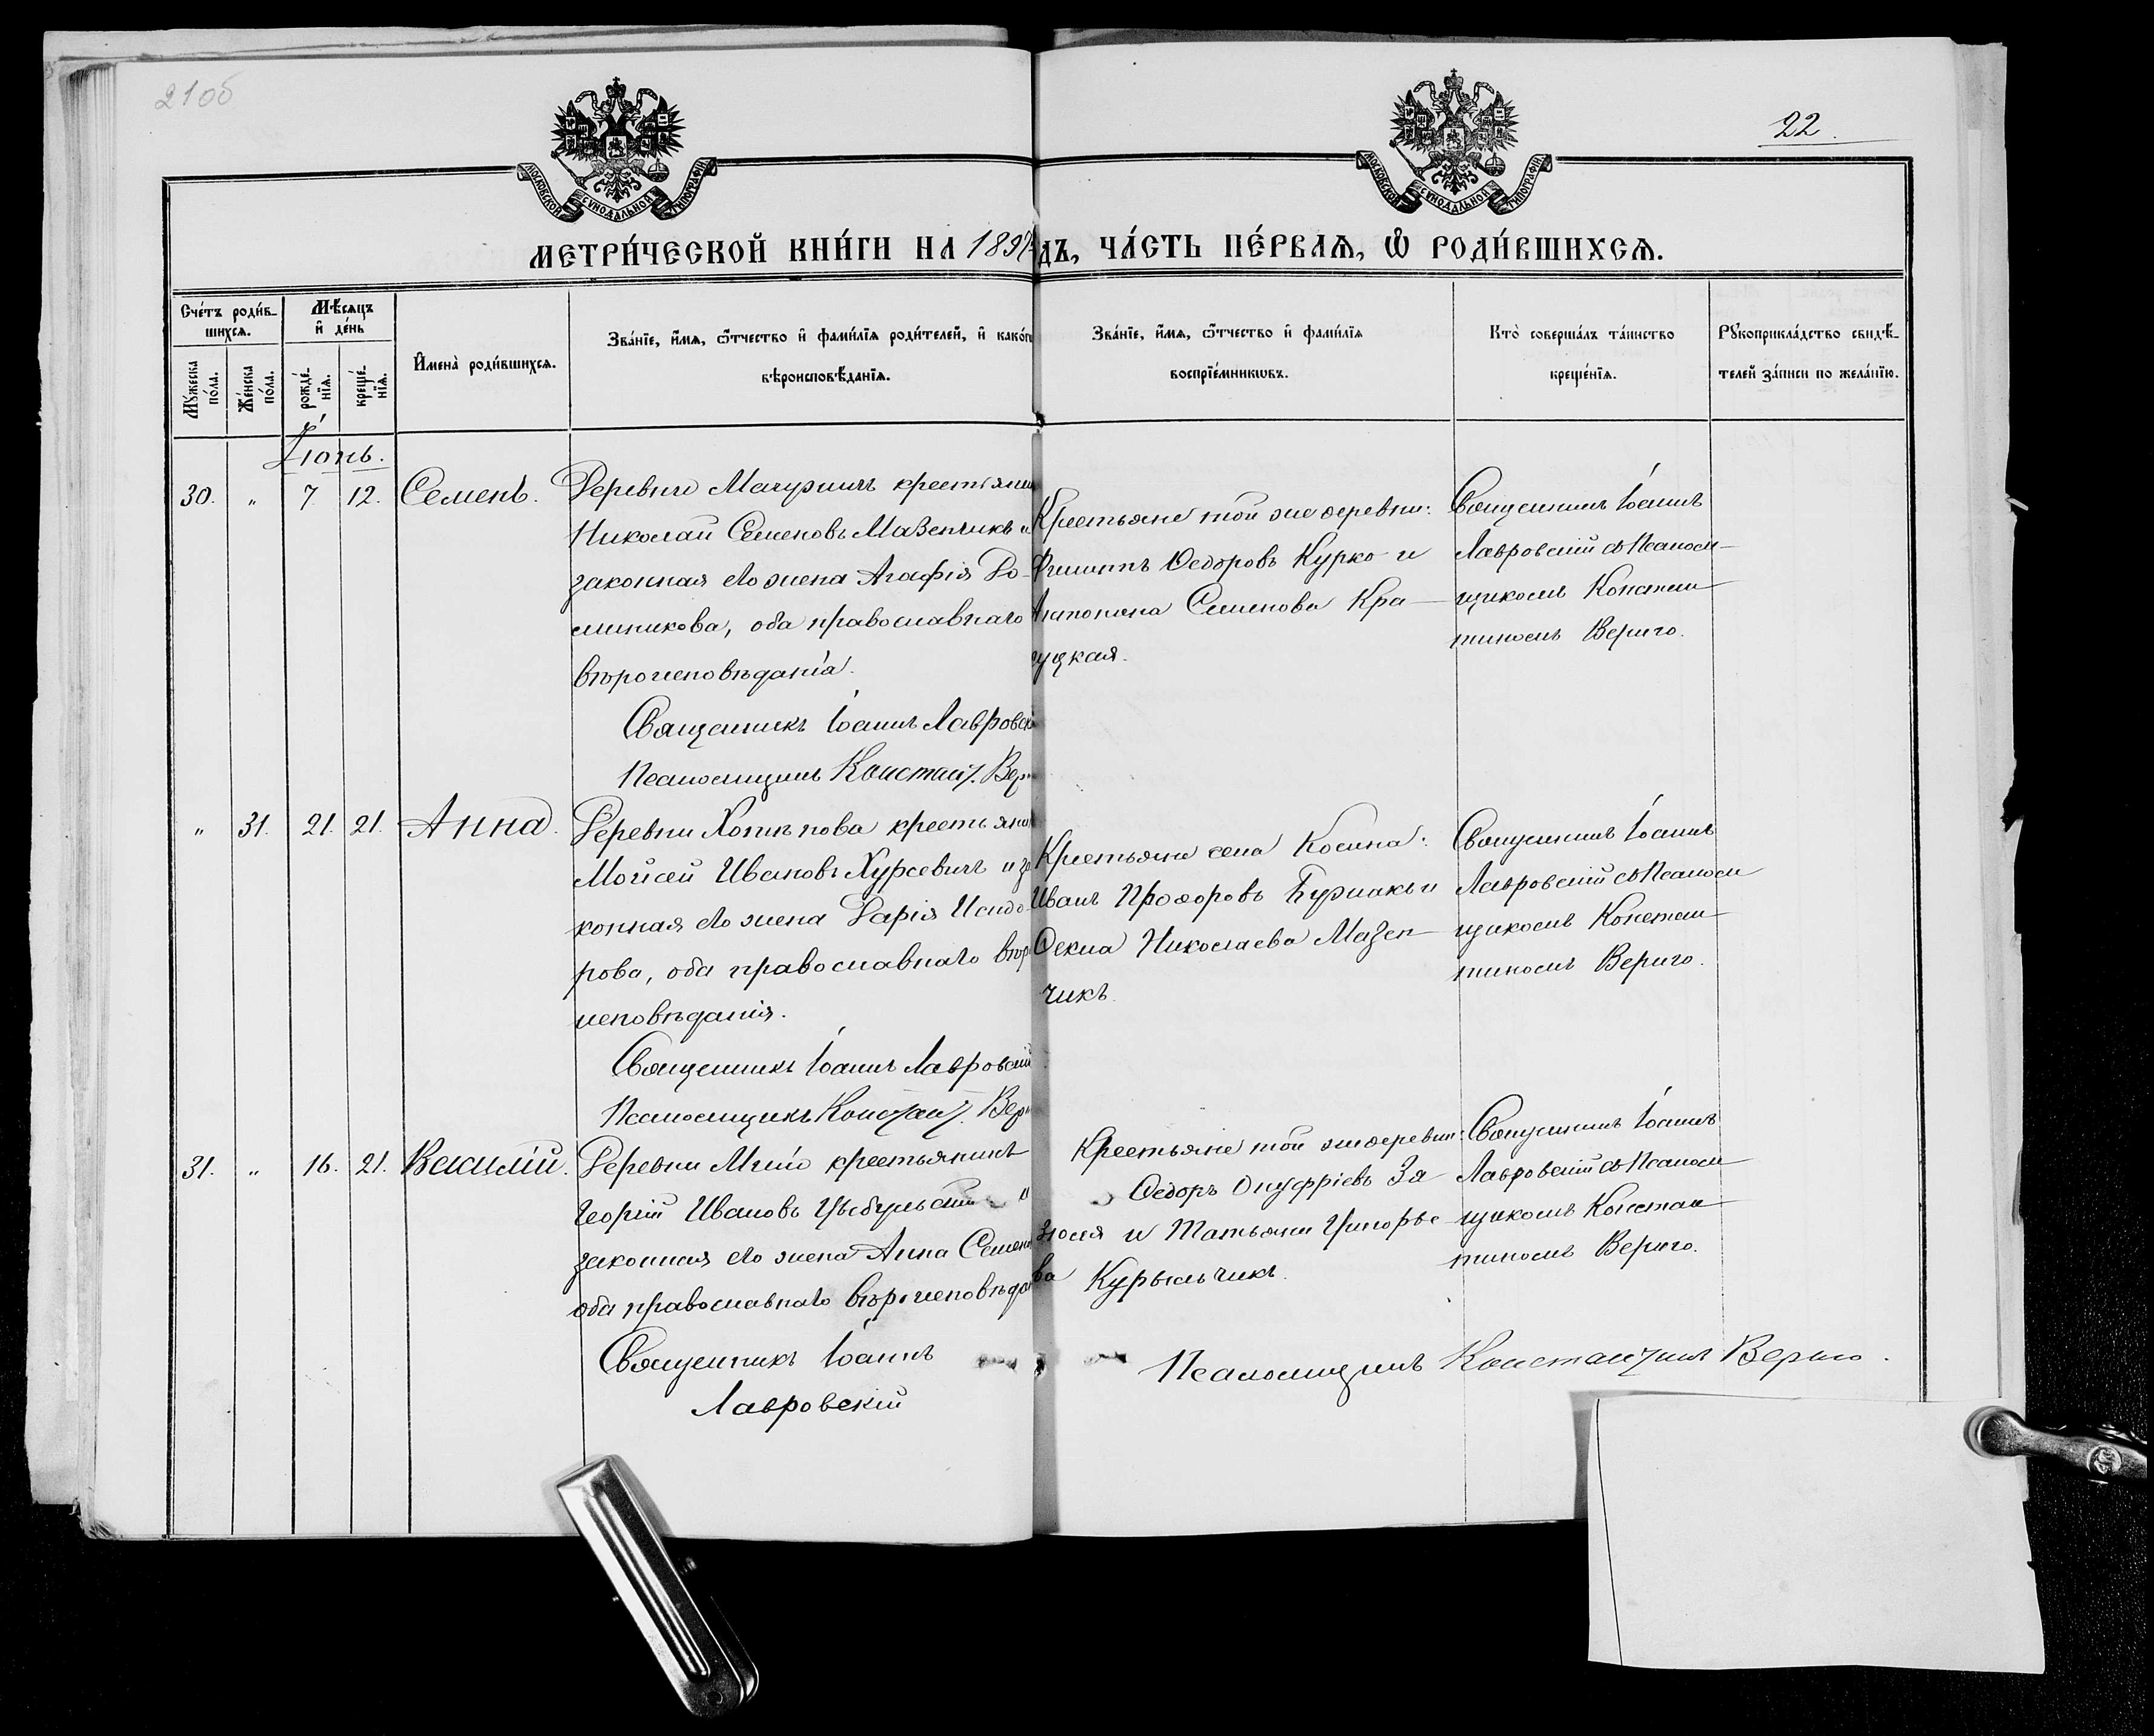 210б
22.
МОСКОВСКОЙ СѴНОДАЛЬНОЙ ТИПОГРАФІИ
МОСКОВСКОЙ СѴНОДАЛЬНОЙ ТИПОГРАФІИ
МЕТРИ́ЧЕСКОЙ КНИ́ГИ НА 1897 ДЪ, ЧА́СТЬ ПЕ́РВАѦ, Ѡ҆ РОДИ́ВШИХСѦ.
Сче́тъ роди́в-
шихсѧ.
Мꙋ́жеска по́ла.
Же́нска по́ла.
Мѣ́сѧцъ
и҆ де́нь
рожде́-
нїѧ.
креще́-
нїѧ.
И҆мена̀ роди́вшихсѧ.
Зва́нїе, и҆́мѧ, ѻ҆́тчество и҆ фами́лїѧ роди́телей, и҆ како́гѡ
вѣроисповѣ́данїѧ.
Зва́нїе, и҆́мѧ, ѻ҆́тчество и҆ фами́лїѧ
воспрїе́мникѡвъ.
Кто̀ соверша́лъ та́инство
креще́нїѧ.
Рꙋкоприкла́дство свидѣ́-
телей за́писи по жела́нїю.
Іюнь.
30. " 7. 12. Семенъ.
Деревни крестьянин
Николай Семеновъ Мазепчикъ и
законная его жена Агафія До-
миникова, оба православнаго
вѣроисповѣданія.
Священникъ Іоаннъ Лавровскі
Псаломщикъ Констант. Вери
Крестьяне той же деревни:
Филиппъ Ѳедоровъ Курко и
Антонина Семенова Кра-
уцкая.
Священникъ Іоаннъ
Лавровскій съ Псалом-
щикомъ Констан-
тиномъ Вериго.
" 31. 21. 21. Анна.
Деревни Хотѣнова крестьянин
Мойсей Ивановъ Хурсевичъ и за
конная его жена Дарія Исидо-
рова, оба православнаго вѣро
исповѣданія.
Священникъ Іоаннъ Лавровскій
Псаломщикъ Констант. Вери
Крестьяне села Косина:
Иванъ Прохоровъ и
Ѳекла Николаева Мазеп-
чикъ.
Священникъ Іоаннъ
Лавровскій съ Псалом
щикомъ Констан-
тиномъ Вериго.
31. " 16. 21. Василій.
Деревни крестьянинъ
Георгій Ивановъ Цыбульскій и
законная его жена Анна Семен
оба православнаго вѣроисповѣдан
Священникъ Іоаннъ
Лавровскій
Крестьяне той же деревни:
Ѳедоръ Онуфріевъ За-
зюля и Татьяна Григорье-
ва Курыльчикъ.
Священникъ Іоаннъ
Лавровскій съ Псалом
щикомъ Констан-
тиномъ Вериго.
Псаломщикъ Константинъ Вериго.